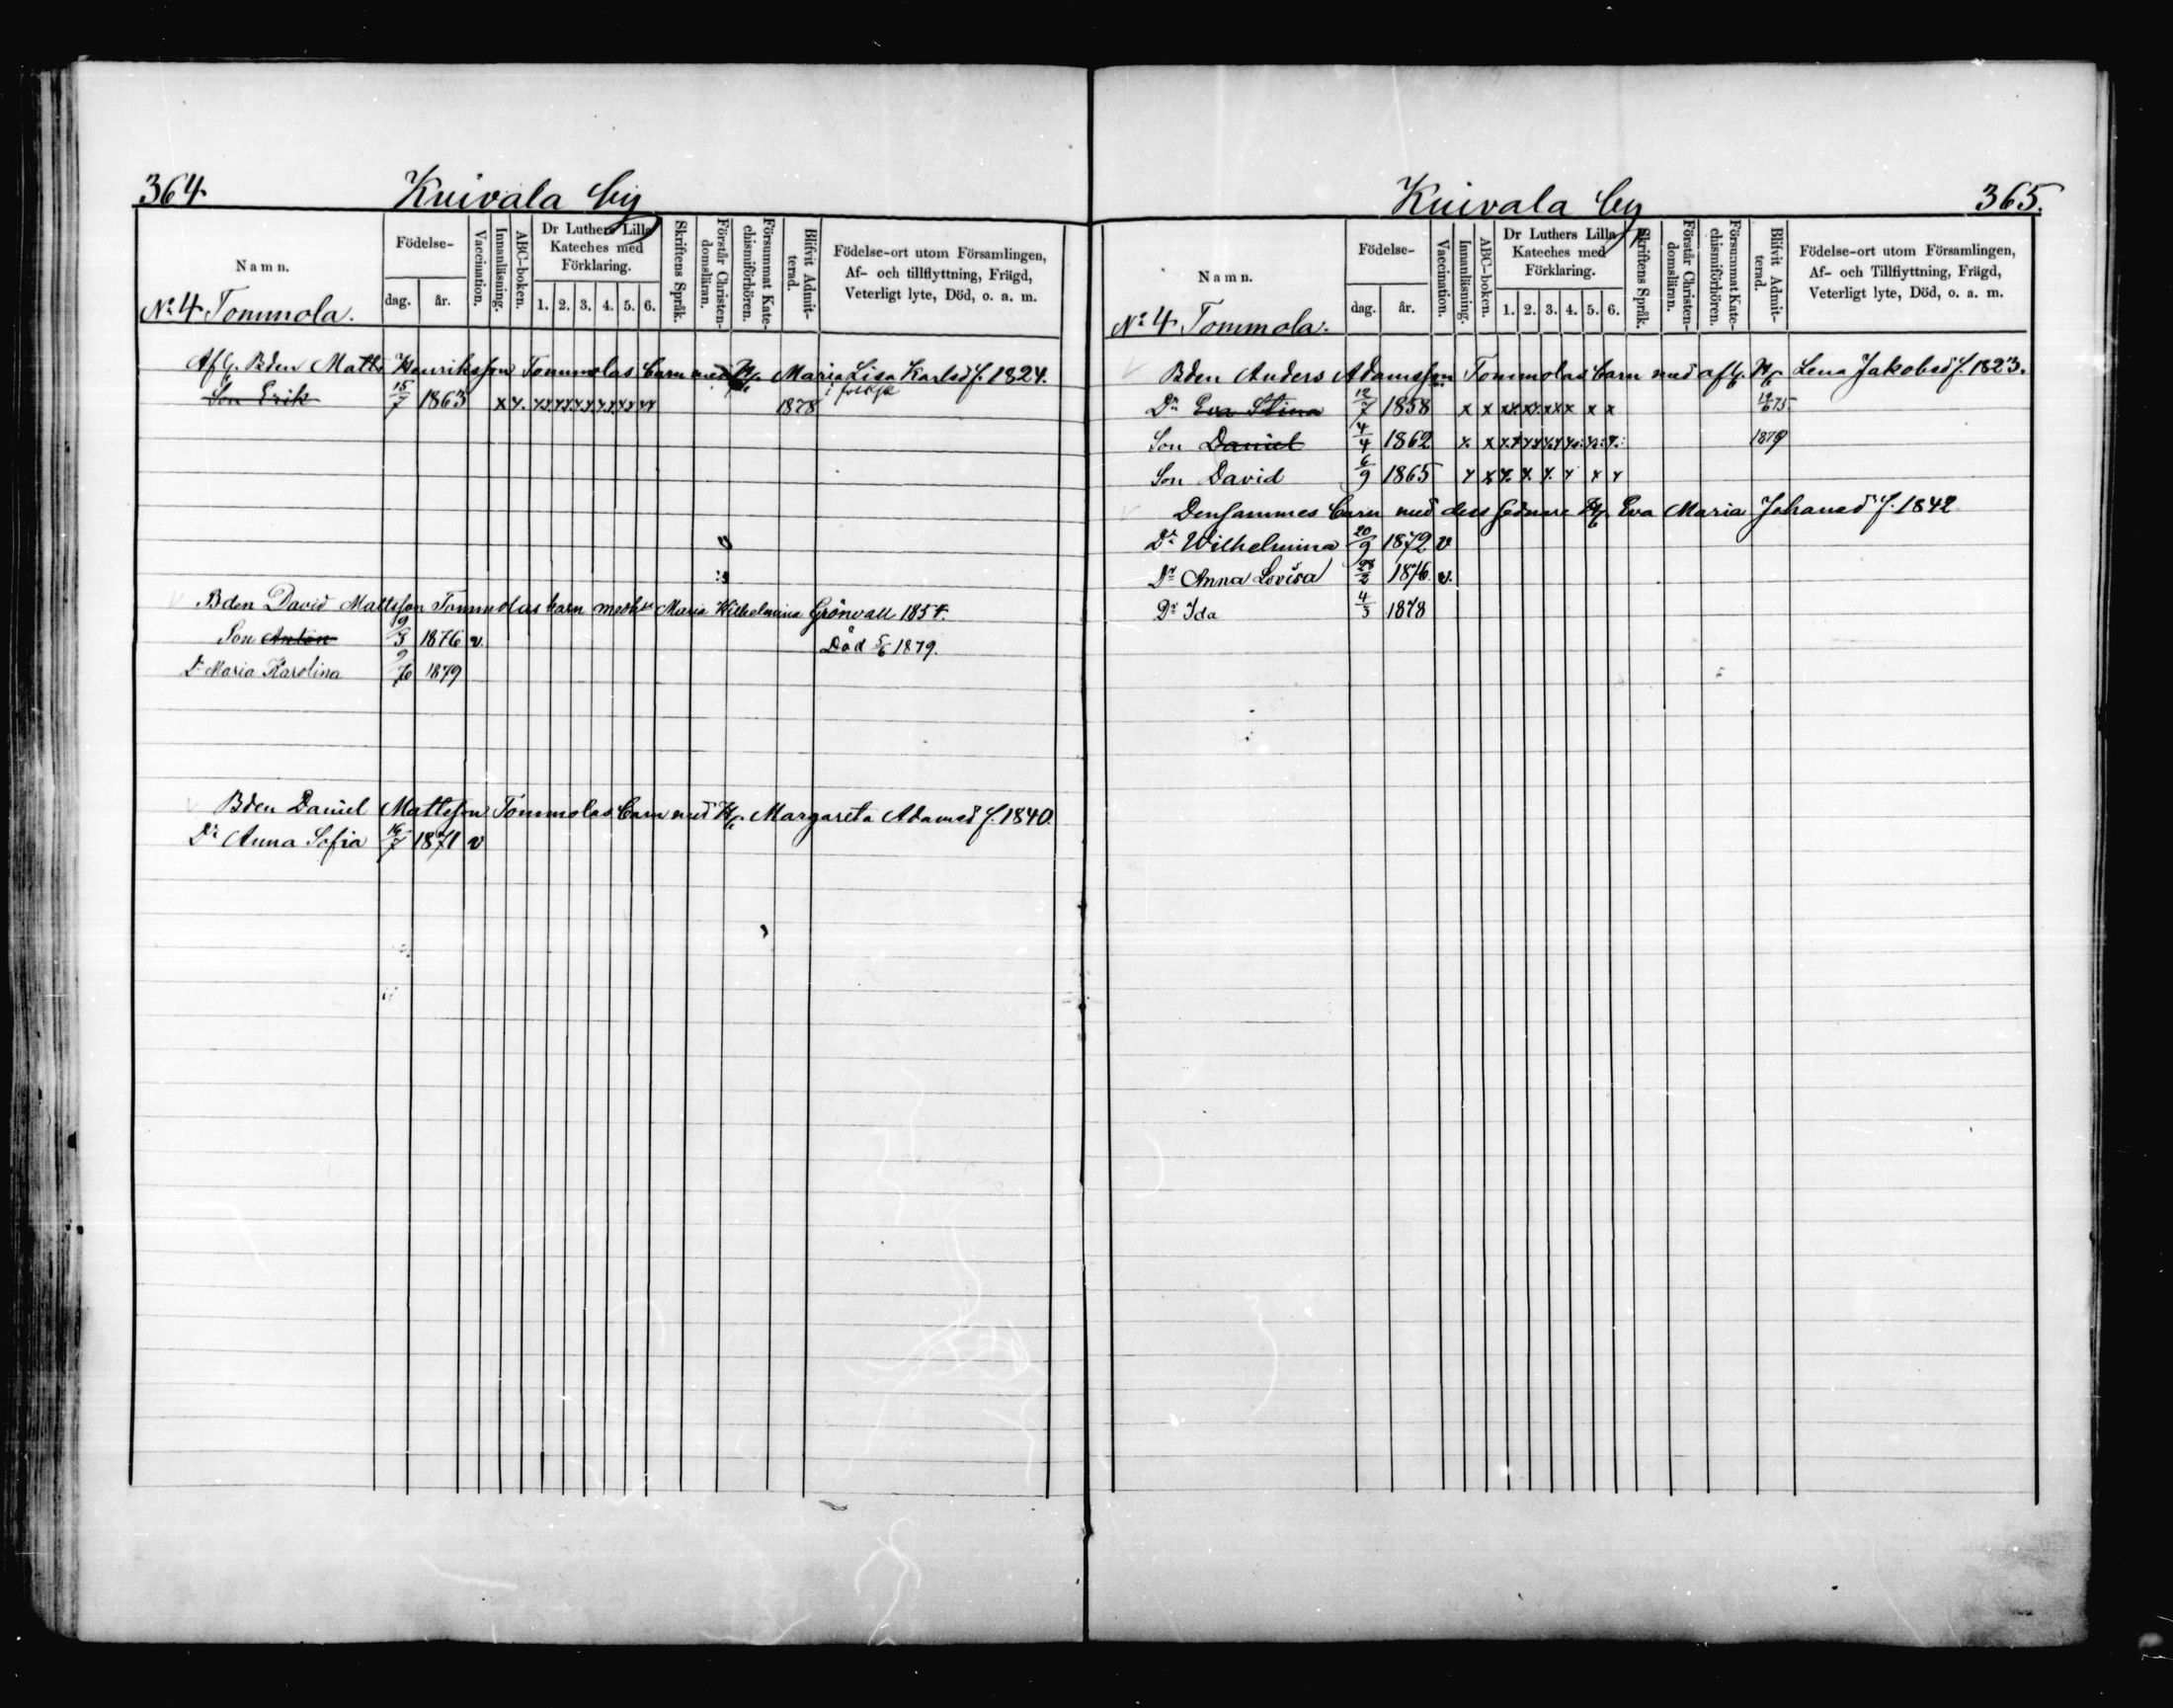 364 Kuivala by
Namn.
Födelse-
dag. år.
Vaccination.
Innanläsning.
ABC-boken.
Dr Luthers Lilla Kateches med Förklaring.
1. 2. 3. 4. 5. 6.
Skriftens Språk.
Förstår Christendomsläran.
Försummat Katechismiförhören.
Blifvit Admitterad.
Födelse-ort utom Församlingen,
Af- och tillflyttning, Frägd,
Veterligt lyte, Död, o. a. m.
No 4 Tommola.
Afl. Bden Matts Henriksson Tommolas barn med Maria Lisa Karlsd f. 1824.
Son Erik 15/7 1863 x x. 1878
Bden David Mattsson Tommolas barn med Maria Wilhelmina Grönvall 1854.
Son Anton 19/3 1876 v. Död 5/6 1879.
Dr Maria Karolina 9/6 1879
Bden Daniel Mattsson Tommolas barn med H. Margareta Adamsd f. 1840.
Dr Anna Sofia 16/7 1871 v
Kuivala by 365.
Namn.
Födelse-
dag. år.
Vaccination.
Innanläsning.
ABC-boken.
Dr Luthers Lilla Kateches med Förklaring.
1. 2. 3. 4. 5. 6.
Skriftens Språk.
Förstår Christendomsläran.
Försummat Katechismiförhören.
Blifvit Admitterad.
Födelse-ort utom Församlingen,
Af- och Tillflyttning, Frägd,
Veterligt lyte, Död, o. a. m.
No 4 Tommola.
Bden Anders Adamsson Tommolas barn med afl. H. Lena Jakobsd f. 1823.
Dr Eva Stina 12/7 1858 x x xx xx xx x x x 19/6 75.
Son Daniel 4/4 1862 x x 1879
Son David 6/9 1865 x x x x x x x x
Densammes barn med dess sednare H. Eva Maria Johansd f. 1842
Dr Wilhelmina 20/9 1872 v
Dr Anna Lovisa 28/2 1876. v.
Dr Ida 4/3 1878